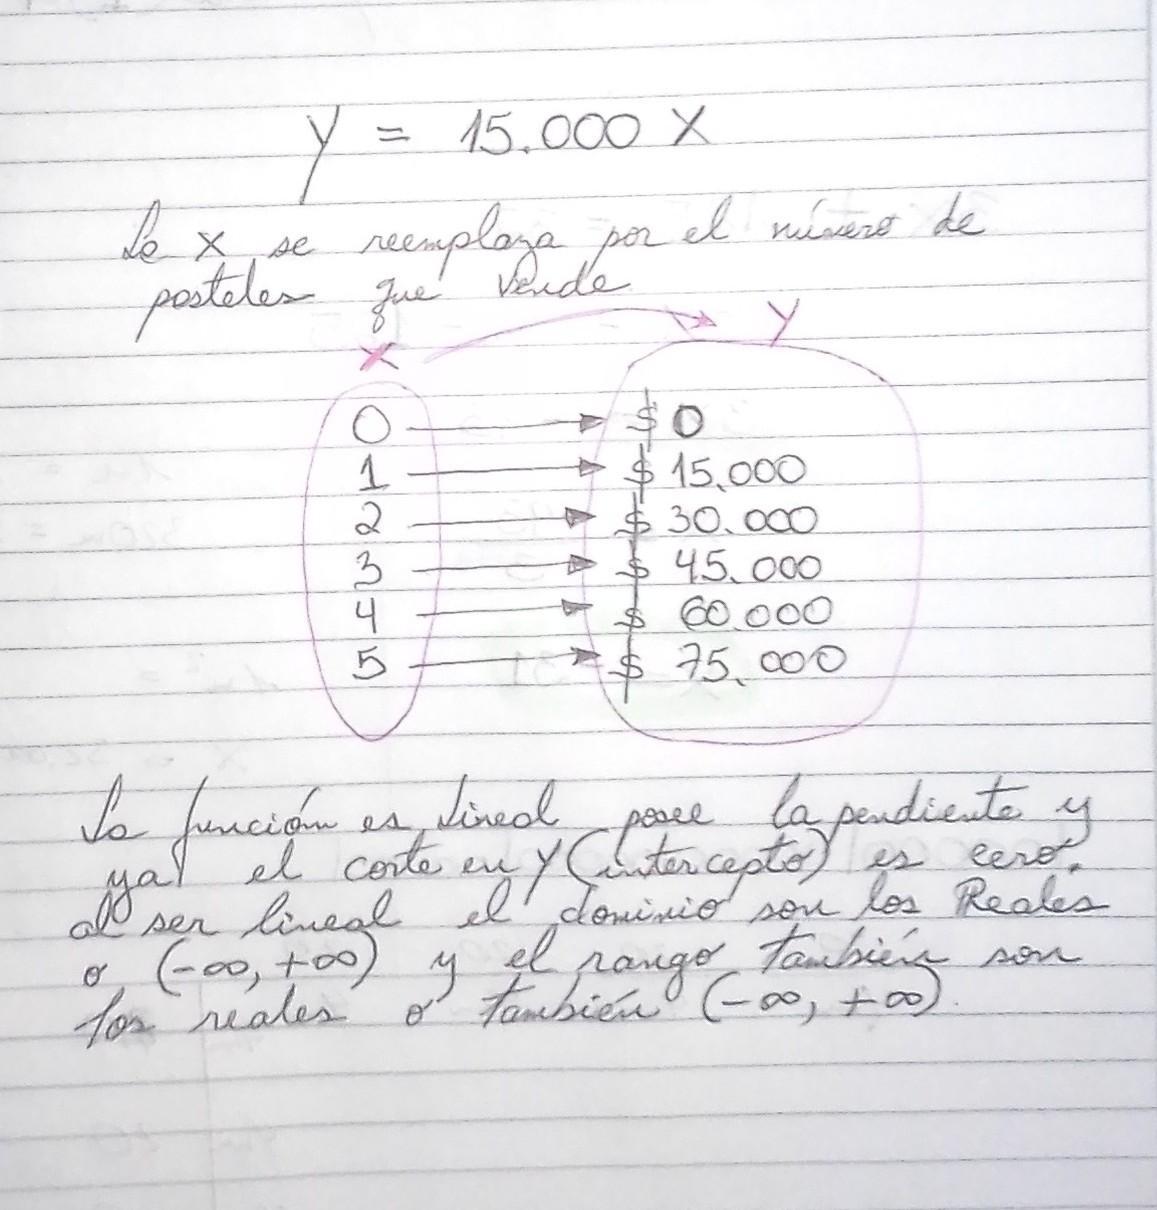 y = 15.000 X
La x se reemplaza por el número de
pasteles que vende
X Y
0 $ 0
1 $ 15.000
2 $ 30.000
3 $ 45.000
4 $ 60.000
5 $ 75.000
La función es lineal posee la pendiente y
ya el corte en y (intercepto) es cero.
al ser lineal el dominio son los Reales
o (-∞, +∞) y el rango también son
los reales o también (-∞, +∞).